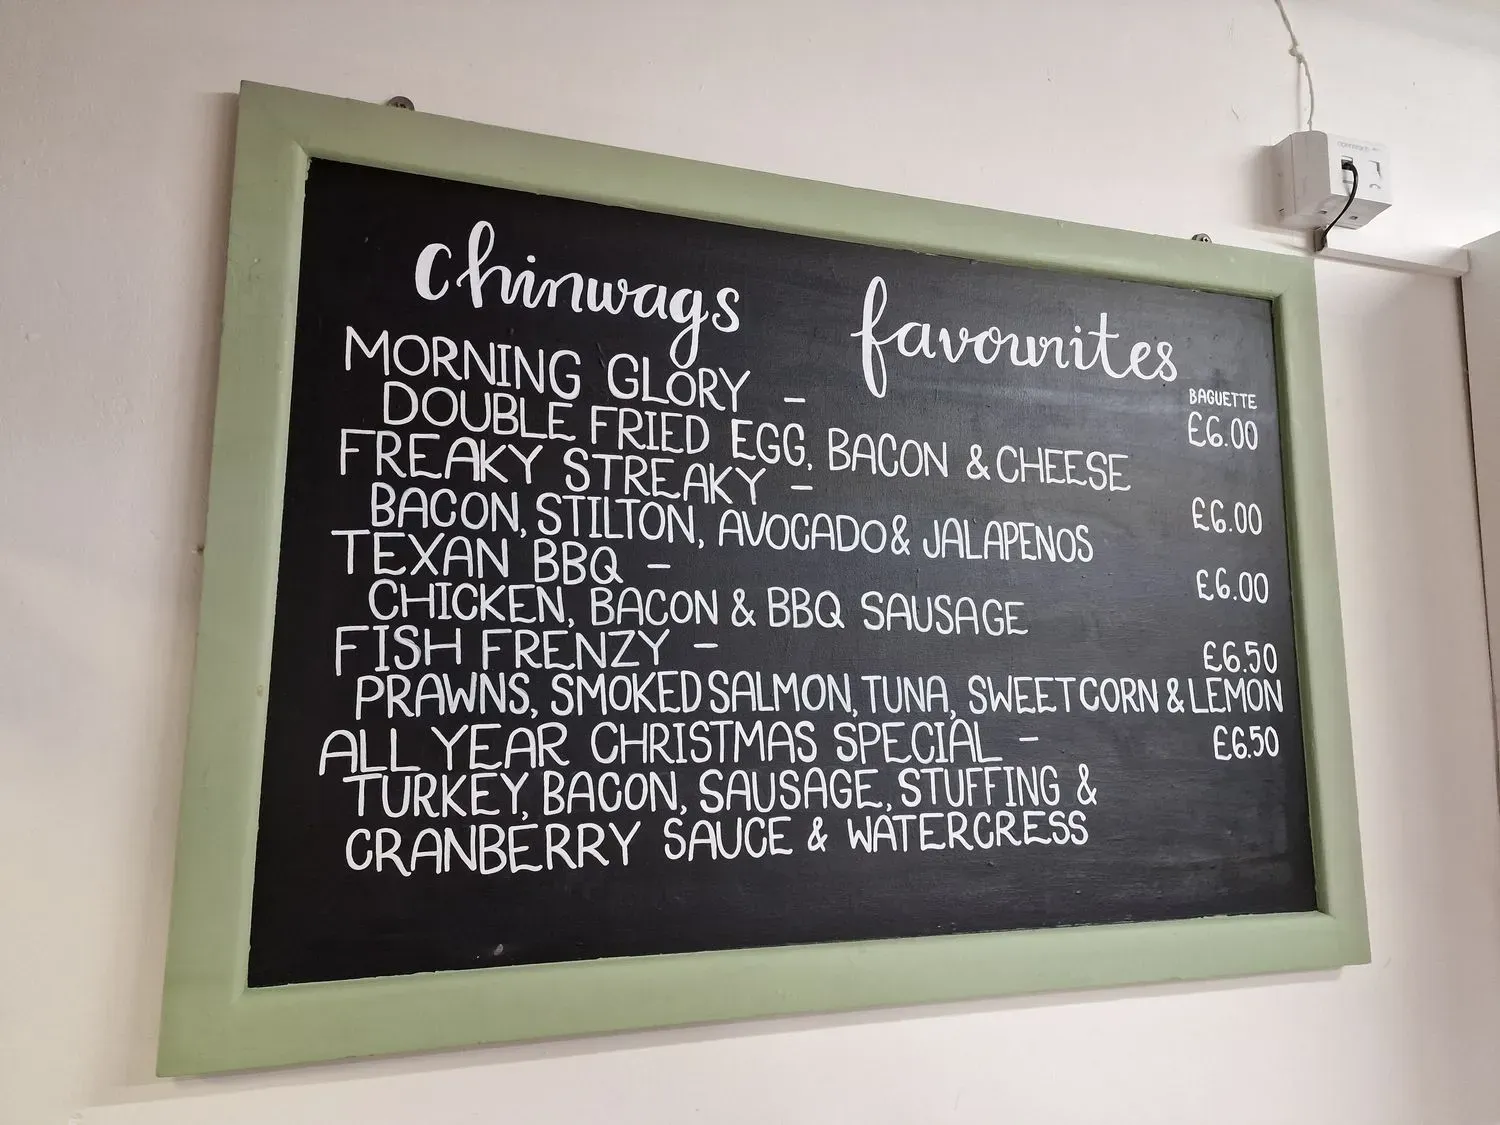 chinwags favourites
BAGUETTE
MORNING GLORY – £6.00
DOUBLE FRIED EGG, BACON & CHEESE
FREAKY STREAKY – £6.00
BACON, STILTON, AVOCADO & JALAPENOS
TEXAN BBQ – £6.00
CHICKEN, BACON & BBQ SAUSAGE
FISH FRENZY – £6.50
PRAWNS, SMOKED SALMON, TUNA, SWEETCORN & LEMON
ALL YEAR CHRISTMAS SPECIAL – £6.50
TURKEY, BACON, SAUSAGE, STUFFING &
CRANBERRY SAUCE & WATERCRESS